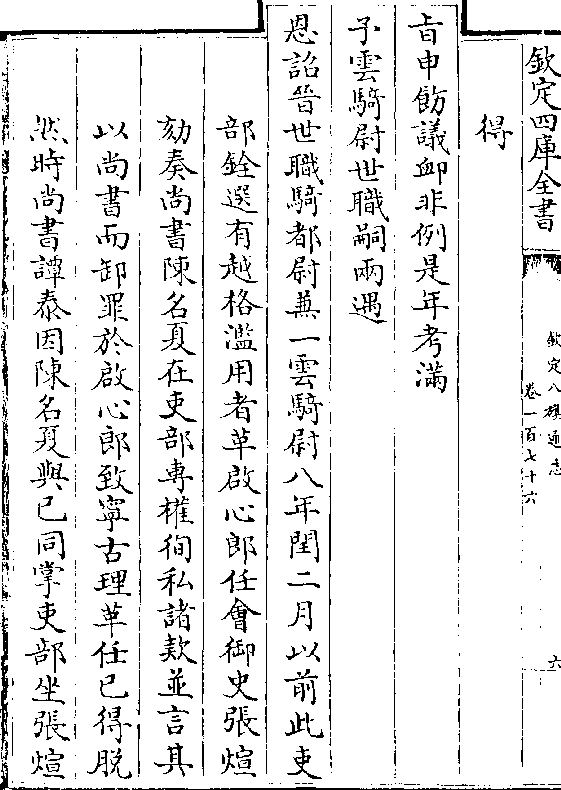 欽定四庫全書
欽定八旗通志
卷一百七十六
六
得
旨申飭議卹非例是年考滿
予雲騎尉世職嗣兩遇
恩詔晉世職騎都尉兼一雲騎尉八年閏二月以前此吏
部銓選有越格濫用者革啟心郎任會御史張煊
劾奏尚書陳名夏在吏部專權徇私諸款並言其
以尚書而卸罪於啟心郎致寧古理革任已得脫
然時尚書譚泰因陳名夏與已同掌吏部坐張煊